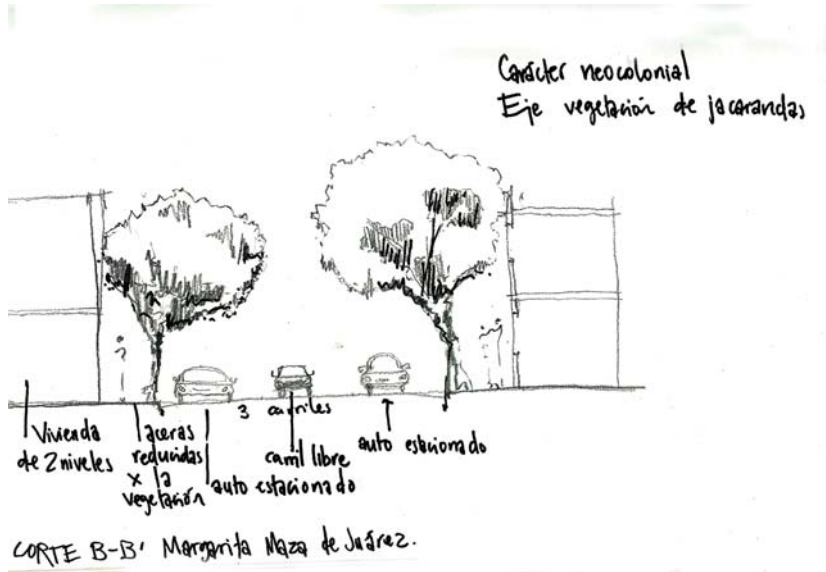 Carácter neocolonial
Eje vegetación de jacarandas
3 carriles
Vivienda
de 2 niveles
aceras
reducidas
x la
vegetación
auto estacionado
carril libre
auto estacionado
CORTE B-B' Margarita Maza de Juárez.